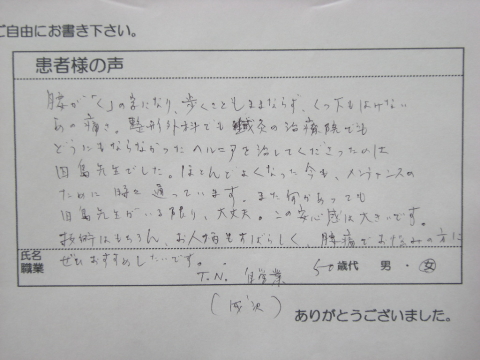 ご自由にお書き下さい。
患者様の声
腰が「く」の字になり、歩くこともままならず、くつ下もはけない
あの痛さ。整形外科でも鍼灸の治療院でも
どうにもならなかったヘルニアを治してくださったのは
田島先生でした。ほとんどよくなった今も、メンテナンスの
ために時々通っています。また何かあっても
田島先生がいる限り、大丈夫。この安心感は大きいです。
技術はもちろん、お人柄もすばらしく、腰痛でお悩みの方に
ぜひおすすめしたいです。
氏名
職業
T.N. 自営業
50歳代 男・女
ありがとうございました。